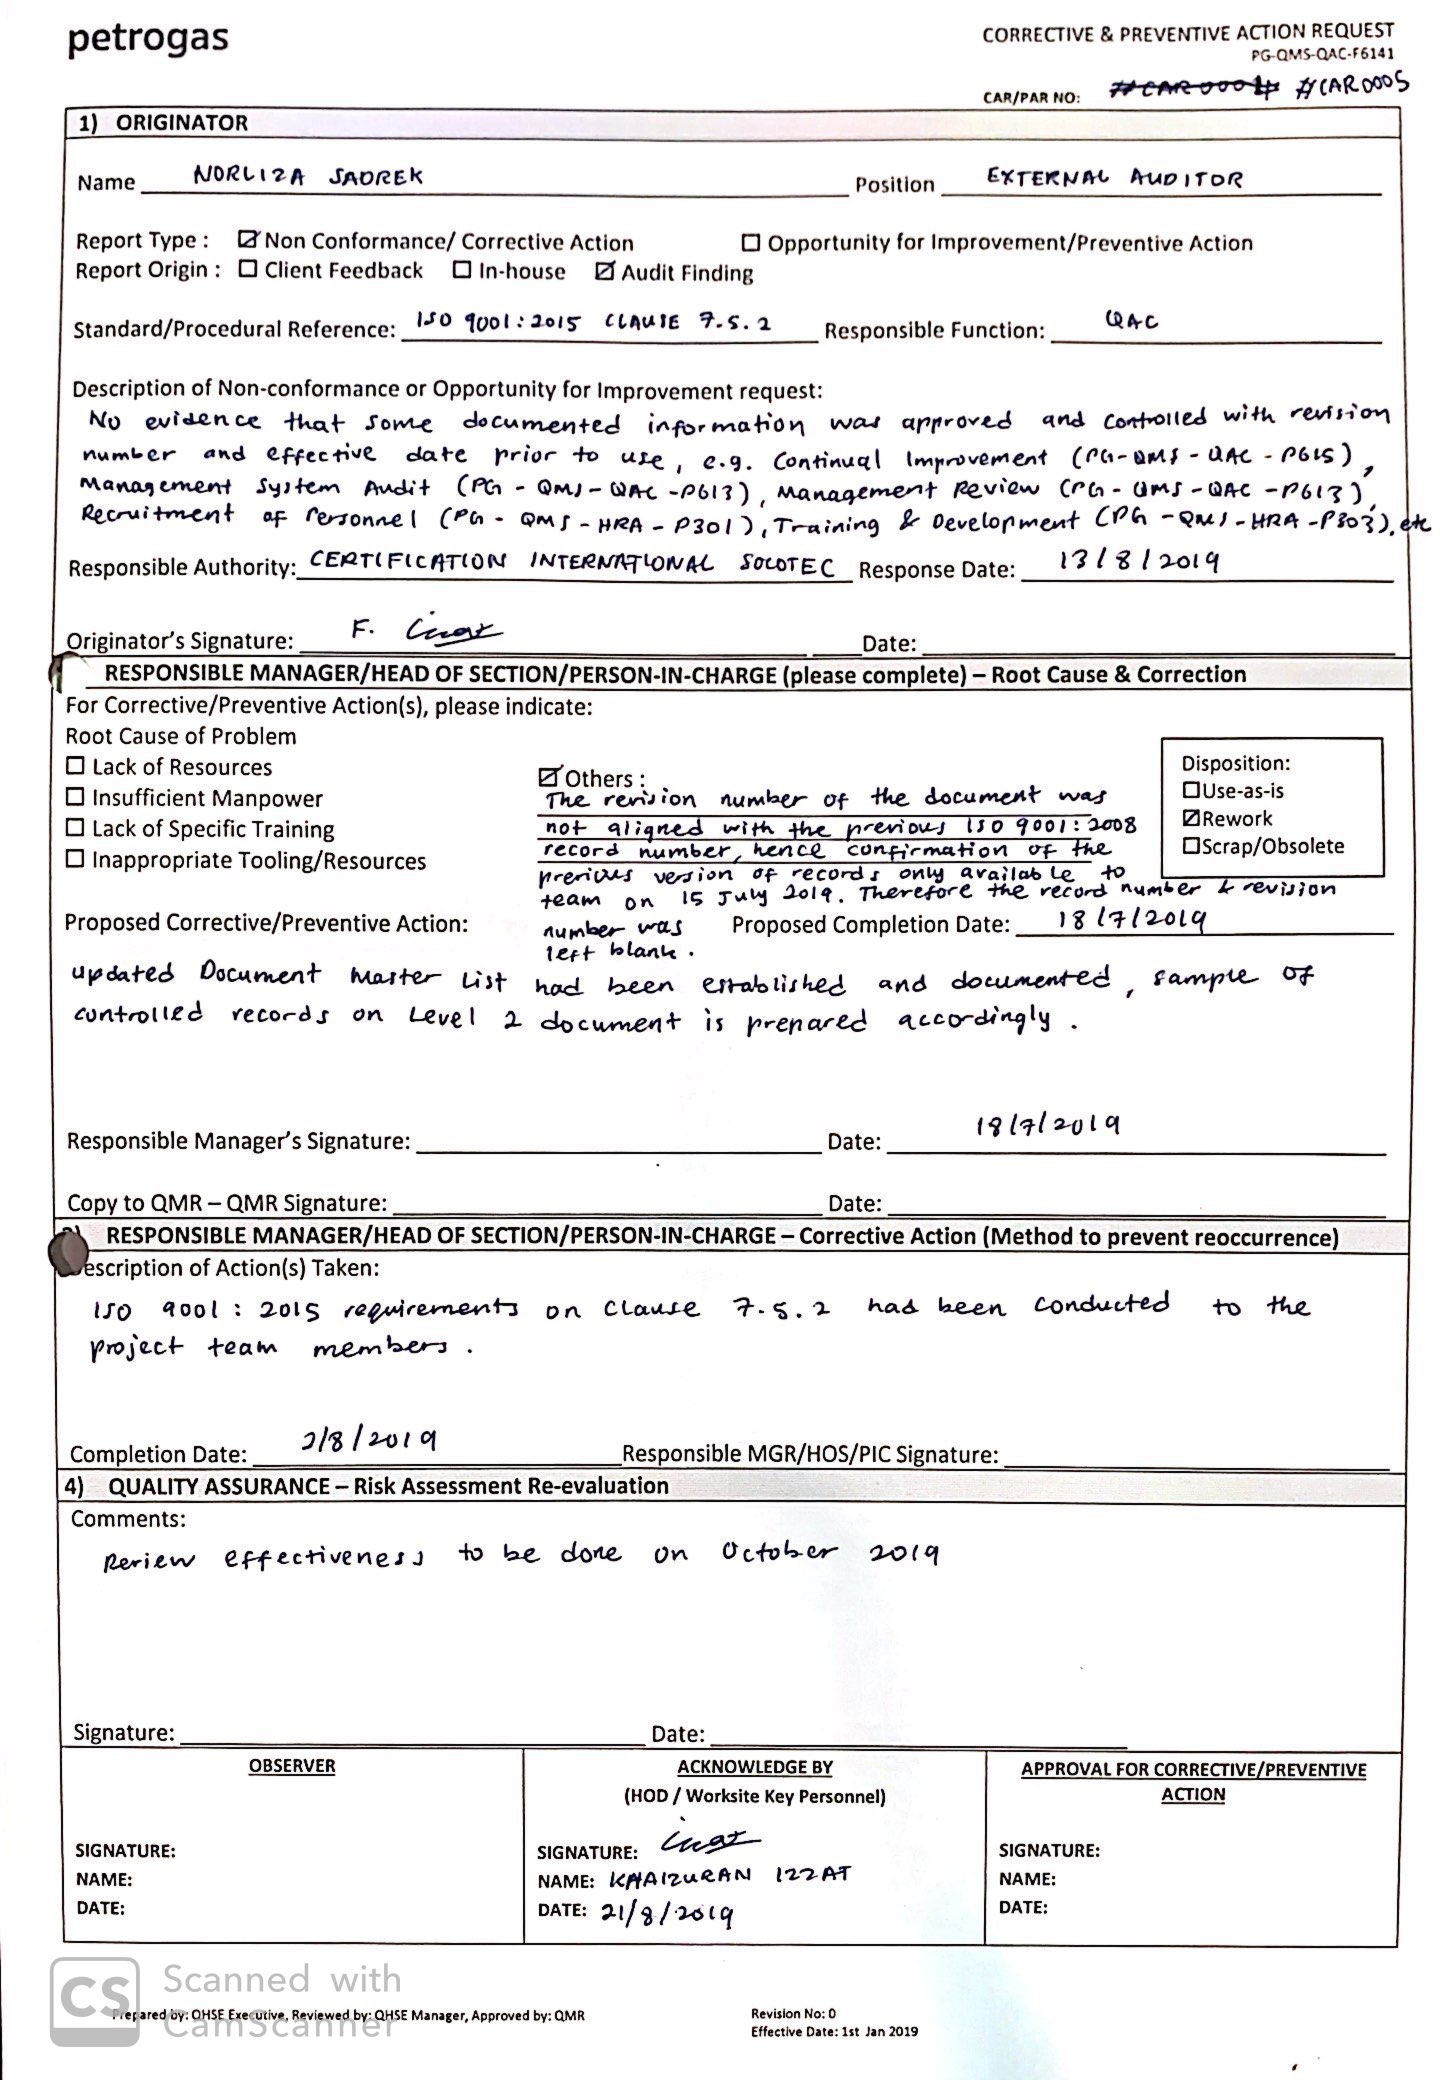 petrogas
CORRECTIVE & PREVENTIVE ACTION REQUEST
PG-QMS-QAC-F6141
CAR/PAR NO: #CAR0004 #CAR0005
1) ORIGINATOR
Name NORLIZA SADREK Position EXTERNAL AUDITOR
Report Type : ☑ Non Conformance/ Corrective Action ☐ Opportunity for Improvement/Preventive Action
Report Origin : ☐ Client Feedback ☐ In-house ☑ Audit Finding
Standard/Procedural Reference: ISO 9001:2015 CLAUSE 7.5.2 Responsible Function: QAC
Description of Non-conformance or Opportunity for Improvement request:
No evidence that some documented information was approved and controlled with revision
number and effective date prior to use, e.g. Continual Improvement (PG-QMS-QAC-P615),
Management System Audit (PG-QMS-QAC-P613), Management Review (PG-QMS-QAC-P613),
Recruitment of Personnel (PG-QMS-HRA-P301), Training & Development (PG-QMS-HRA-P303), etc
Responsible Authority: CERTIFICATION INTERNATIONAL SOCOTEC Response Date: 13/8/2019
Originator's Signature: F. Date:
RESPONSIBLE MANAGER/HEAD OF SECTION/PERSON-IN-CHARGE (please complete) – Root Cause & Correction
For Corrective/Preventive Action(s), please indicate:
Root Cause of Problem
☐ Lack of Resources
☐ Insufficient Manpower
☐ Lack of Specific Training
☐ Inappropriate Tooling/Resources
☑ Others :
The revision number of the document was
not aligned with the previous ISO 9001:2008
record number, hence confirmation of the
previous version of records only available to
team on 15 July 2019. Therefore the record number & revision
number was
left blank.
Disposition:
☐ Use-as-is
☑ Rework
☐ Scrap/Obsolete
Proposed Corrective/Preventive Action: Proposed Completion Date: 18/7/2019
updated Document Master List had been established and documented, sample of
controlled records on Level 2 document is prepared accordingly.
Responsible Manager's Signature: Date: 18/7/2019
Copy to QMR – QMR Signature: Date:
RESPONSIBLE MANAGER/HEAD OF SECTION/PERSON-IN-CHARGE – Corrective Action (Method to prevent reoccurrence)
escription of Action(s) Taken:
ISO 9001:2015 requirements on Clause 7.5.2 had been conducted to the
project team members.
Completion Date: 2/8/2019 Responsible MGR/HOS/PIC Signature:
4) QUALITY ASSURANCE – Risk Assessment Re-evaluation
Comments:
Review effectiveness to be done on October 2019
Signature: Date:
OBSERVER
SIGNATURE:
NAME:
DATE:
ACKNOWLEDGE BY
(HOD / Worksite Key Personnel)
SIGNATURE:
NAME: KHAIZURAN IZZAT
DATE: 21/8/2019
APPROVAL FOR CORRECTIVE/PREVENTIVE
ACTION
SIGNATURE:
NAME:
DATE:
CS Scanned with
CamScanner
Prepared by: QHSE Executive, Reviewed by: QHSE Manager, Approved by: QMR
Revision No: 0
Effective Date: 1st Jan 2019